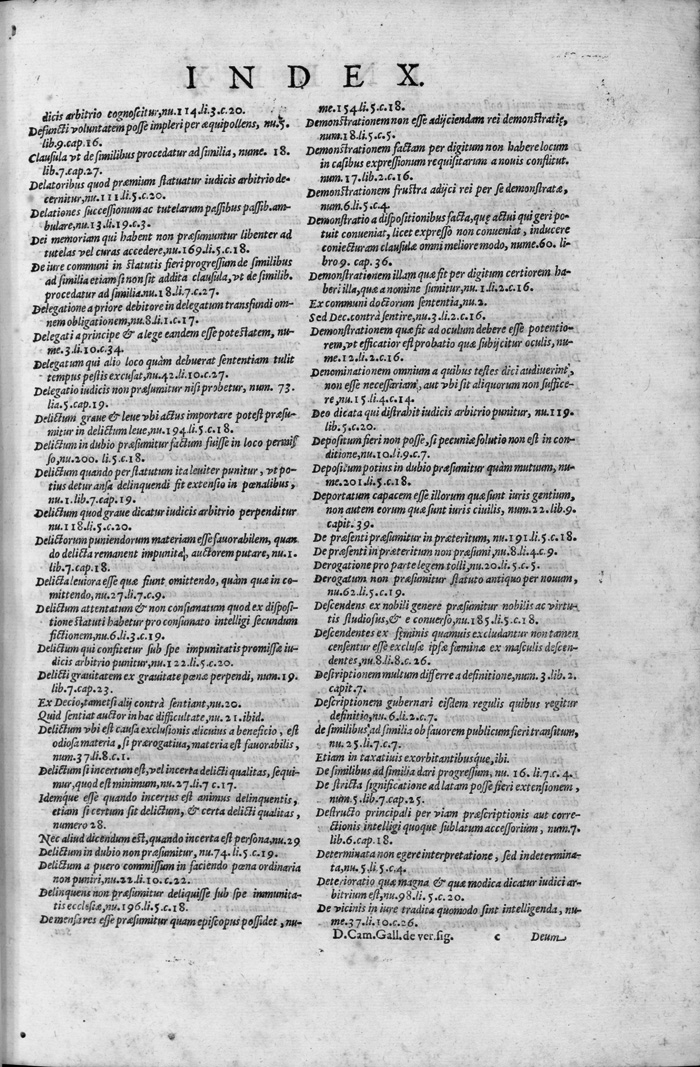 INDEX.
dicis arbitrio cognoscitur, nu. 114. li. 3. c. 20.
Defuncti voluntatem posse impleri per æquipollens, nu. 5.
lib. 9. cap. 16.
Clausula vt de similibus procedatur ad similia, nume. 18.
lib. 7. cap. 27.
Delatoribus quod præmium statuatur iudicis arbitrio de-
cernitur, nu. 111. li. 5. c. 20.
Delationes successionum ac tutelarum passibus passib. am-
bulare, nu. 13. li. 19. c. 3.
Dei memoriam qui habent non præsumuntur libenter ad
tutelas vel curas accedere, nu. 169. li. 5. c. 18.
De iure communi in statutis fieri progressum de similibus
ad similia etiam si non sit addita clausula, vt de similib.
procedatur ad similia. nu. 18. li. 7. c. 27.
Delegatione a priore debitore in delegatum transfundi om-
nem obligationem, nu. 8. li. 1. c. 17.
Delegati a principe & a lege eandem esse potestatem, nu-
me. 3. li. 10. c. 34.
Delegatum qui alio loco quàm debuerat sententiam tulit
tempus pestis excusat, nu. 42. li. 10. c. 27.
Delegatio iudicis non præsumitur nisi probetur, num. 73.
lia. 5. cap. 19.
Delictum graue & leue vbi actus importare potest præsu-
mitur in delictum leue, nu. 194. li. 5. c. 18.
Delictum in dubio præsumitur factum fuisse in loco permis
so, nu. 200. li. 5. c. 18.
Delictum quando per statutum ita leuiter punitur, vt po-
tius detur ansa delinquendi fit extensio in pœnalibus,
nu. 1. lib. 7. cap. 19.
Delictum quod graue dicatur iudicis arbitrio perpenditur
nu. 118. li. 5. c. 20.
Delictorum puniendorum materiam esse fauorabilem, quan
do delicta remanent impunita, auctorem putare, nu. 1.
lib. 7. cap. 18.
Delicta leuiora esse quæ fiunt omittendo, quàm quæ in co-
mittendo, nu. 27. li. 7. c. 9.
Delictum attentatum & non consumatum quod ex disposi-
tione statuti habetur pro consumato intelligi secundum
fictionem, nu. 6. li. 3. c. 19.
Delictum qui confitetur sub spe impunitatis promissæ iu-
dicis arbitrio punitur, nu. 122. li. 5. c. 20.
Delicti grauitatem ex grauitate pœnæ perpendi, num. 19.
lib. 7. cap. 23.
Ex Decio, tametsi alij contrà sentiant, nu. 20.
Quid sentiat auctor in hac difficultate, nu. 21. ibid.
Delictum vbi est causa exclusionis alicuius a beneficio, est
odiosa materia, si prærogatiua, materia est fauorabilis,
num. 37. li. 8. c. 1.
Delictum si incertum est, vel incerta delicti qualitas, sequi-
mur, quod est minimum, nu. 27. li. 7. c. 17.
Idemque esse quando incertus est animus delinquentis,
etiam si certum sit delictum, & certa delicti qualitas,
numero 28.
Nec aliud dicendum est, quando incerta est persona, nu. 29
Delictum in dubio non præsumitur, nu. 74. li. 5. c. 19.
Delictum a puero commissum in faciendo pœna ordinaria
non puniri, nu. 22. li. 10. c. 22.
Delinquens non præsumitur deliquisse sub spe immunita-
tis ecclesiæ, nu. 196. li. 5. c. 18.
De mensa res esse præsumitur quam episcopus possidet, nu-
me. 154. li. 5. c. 18.
Demonstrationem non esse adijciendam rei demonstratæ,
num. 18. li. 5. c. 5.
Demonstrationem factam per digitum non habere locum
in casibus expressionum requisitarum a nouis constitut.
num. 17. lib. 2. c. 16.
Demonstrationem frustra adijci rei per se demonstratæ,
num. 6. li. 5. c. 4.
Demonstratio a dispositionibus facta, quę actui qui geri po-
tuit conueniat, licet expresso non conueniat, inducere
coniecturam clausulæ omni meliore modo, nume. 60. li-
bro 9. cap. 36.
Demonstrationem illam quæ fit per digitum certiorem ha-
beri illa, quæ a nomine sumitur, nu. 1. li. 2. c. 16.
Ex communi doctorum sententia, nu. 2.
Sed Dec. contrà sentire, nu. 3. li. 2. c. 16.
Demonstrationem quæ fit ad oculum debere esse potentio-
rem, vt efficatior est probatio quæ subijcitur oculis, nu-
me. 12. li. 2. c. 16.
Denominationem omnium a quibus testes dici audiuerint,
non esse necessariam, aut vbi sit aliquorum non suffice-
re, nu. 15. li. 4. c. 14.
Deo dicata qui distrahit iudicis arbitrio punitur, nu. 119.
lib. 5. c. 20.
Depositum fieri non posse, si pecuniæ solutio non est in con-
ditione, nu. 10. li. 9. c. 7.
Depositum potius in dubio præsumitur quàm mutuum, nu-
me. 201. li. 5. c. 18.
Deportatum capacem esse illorum quæ sunt iuris gentium,
non autem eorum quæ sunt iuris ciuilis, num. 22. lib. 9.
capit. 39.
De præsenti præsumitur in præteritum, nu. 191. li. 5. c. 18.
De præsenti in præteritum non præsumi, nu. 8. li. 4. c. 9.
Derogatione pro parte legem tolli, nu. 20. li. 5. c. 5.
Derogatum non præsumitur statuto antiquo per nouum,
nu. 62. li. 5. c. 19.
Descendens ex nobili genere præsumitur nobilis ac virtu-
tis studiosus, & e conuerso, nu. 185. li. 5. c. 18.
Descendentes ex feminis quamuis excludantur non tamen
censentur esse exclusæ ipsæ fœminæ ex masculis descen-
dentes, nu. 8. li. 8. c. 26.
Destriptionem multum differre a definitione, num. 3. lib. 2.
capit. 7.
Descriptionem gubernari eisdem regulis quibus regitur
definitio, nu. 6. li. 2. c. 7.
de similibus ad similia ob fauorem publicum fieri transitum,
nu. 25. li. 7. c. 7.
Etiam in taxatiuis exorbitantibusque, ibi.
De similibus ad similia dari progressum, nu. 16. li. 7. c. 4.
De stricta significatione ad latam posse fieri extensionem,
num. 5. lib. 7. cap. 25.
Destructo principali per viam præscriptionis aut corre-
ctionis intelligi quoque sublatum accessorium, num. 7.
lib. 6. cap. 18.
Determinata non egere interpretatione, sed indetermina-
ta, nu. 5. li. 5. c. 4.
Deterioratio quæ magna & quæ modica dicatur iudici ar-
bitrium est, nu. 98. li. 5. c. 20.
De vicinis in iure tradita quomodo sint intelligenda, nu-
me. 37. li. 10. c. 26.
D. Cam. Gall. de ver. sig. c Deum